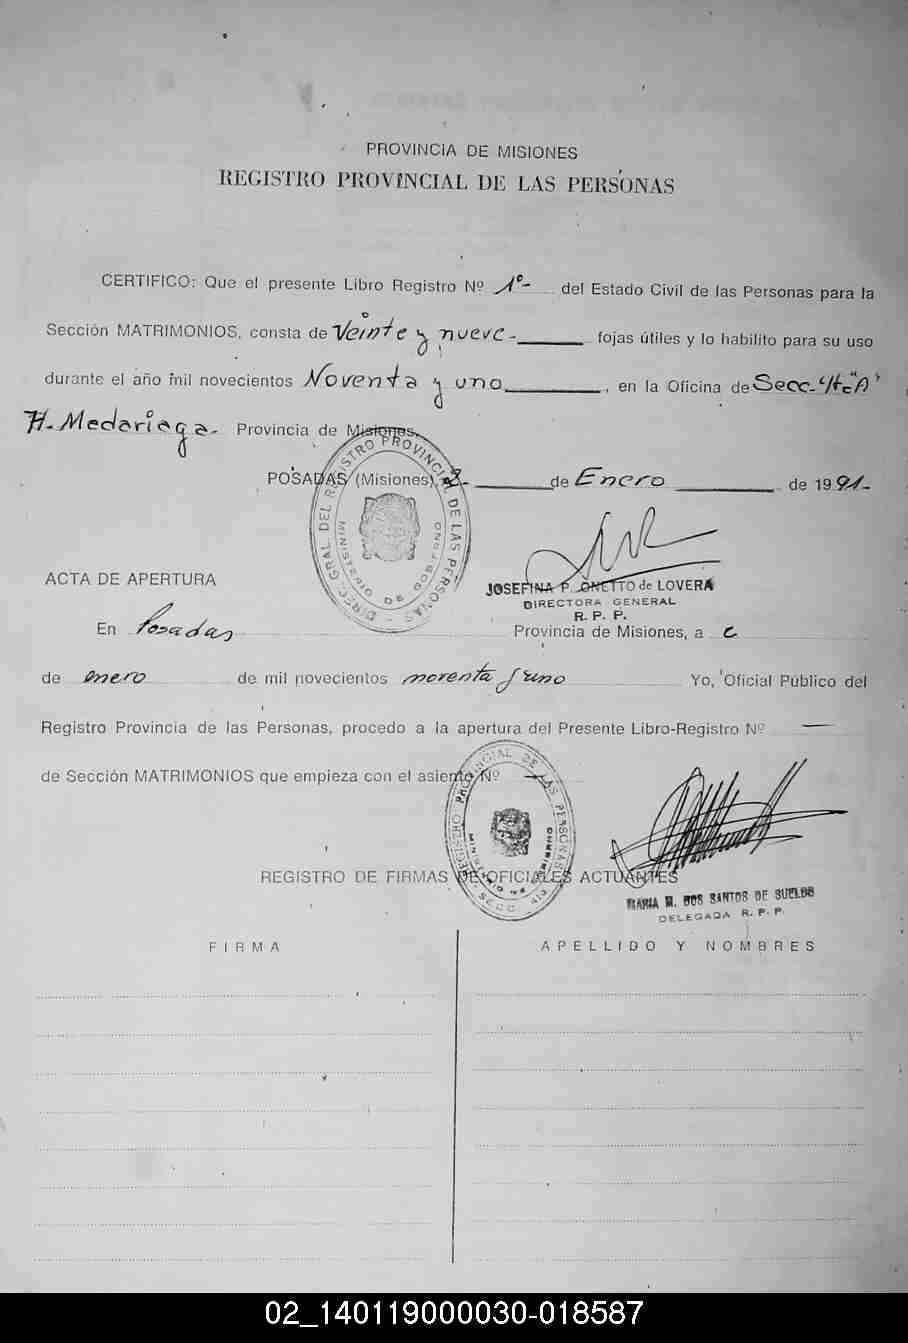 PROVINCIA DE MISIONES
REGISTRO PROVINCIAL DE LAS PERSONAS
CERTIFICO: Que el presente Libro Registro Nº 1º- del Estado Civil de las Personas para la
Sección MATRIMONIOS, consta de Veinte y nueve - fojas útiles y lo habilito para su uso
durante el año mil novecientos Noventa y uno , en la Oficina de Secc.
H. Medariaga - Provincia de Misiones.
POSADAS (Misiones), 2- de Enero de 1991-
DIREC. GRAL. DEL REGISTRO PROVINCIAL DE LAS PERSONAS
MINISTERIO DE GOBIERNO
ACTA DE APERTURA
JOSEFINA P. ONETTO de LOVERA
DIRECTORA GENERAL
R. P. P.
En Posadas Provincia de Misiones, a
de enero de mil novecientos noventa y uno Yo, Oficial Público del
Registro Provincia de las Personas, procedo a la apertura del Presente Libro-Registro Nº —
de Sección MATRIMONIOS que empieza con el asiento Nº —
REGISTRO PROVINCIAL DE LAS PERSONAS
REGISTRO DE FIRMAS DE OFICIALES ACTUANTES
MARIA M. DOS SANTOS DE SUELDO
DELEGADA R. P. P.
FIRMA
APELLIDO Y NOMBRES
02_140119000030-018587